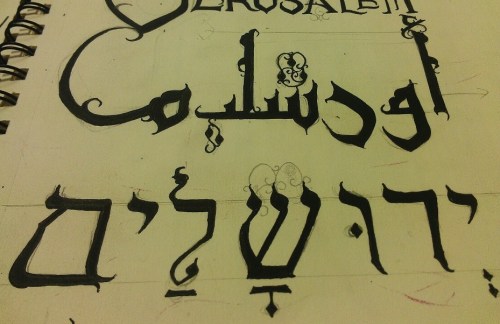 JERUSALEM
أورشليم
יְרוּשָלַים